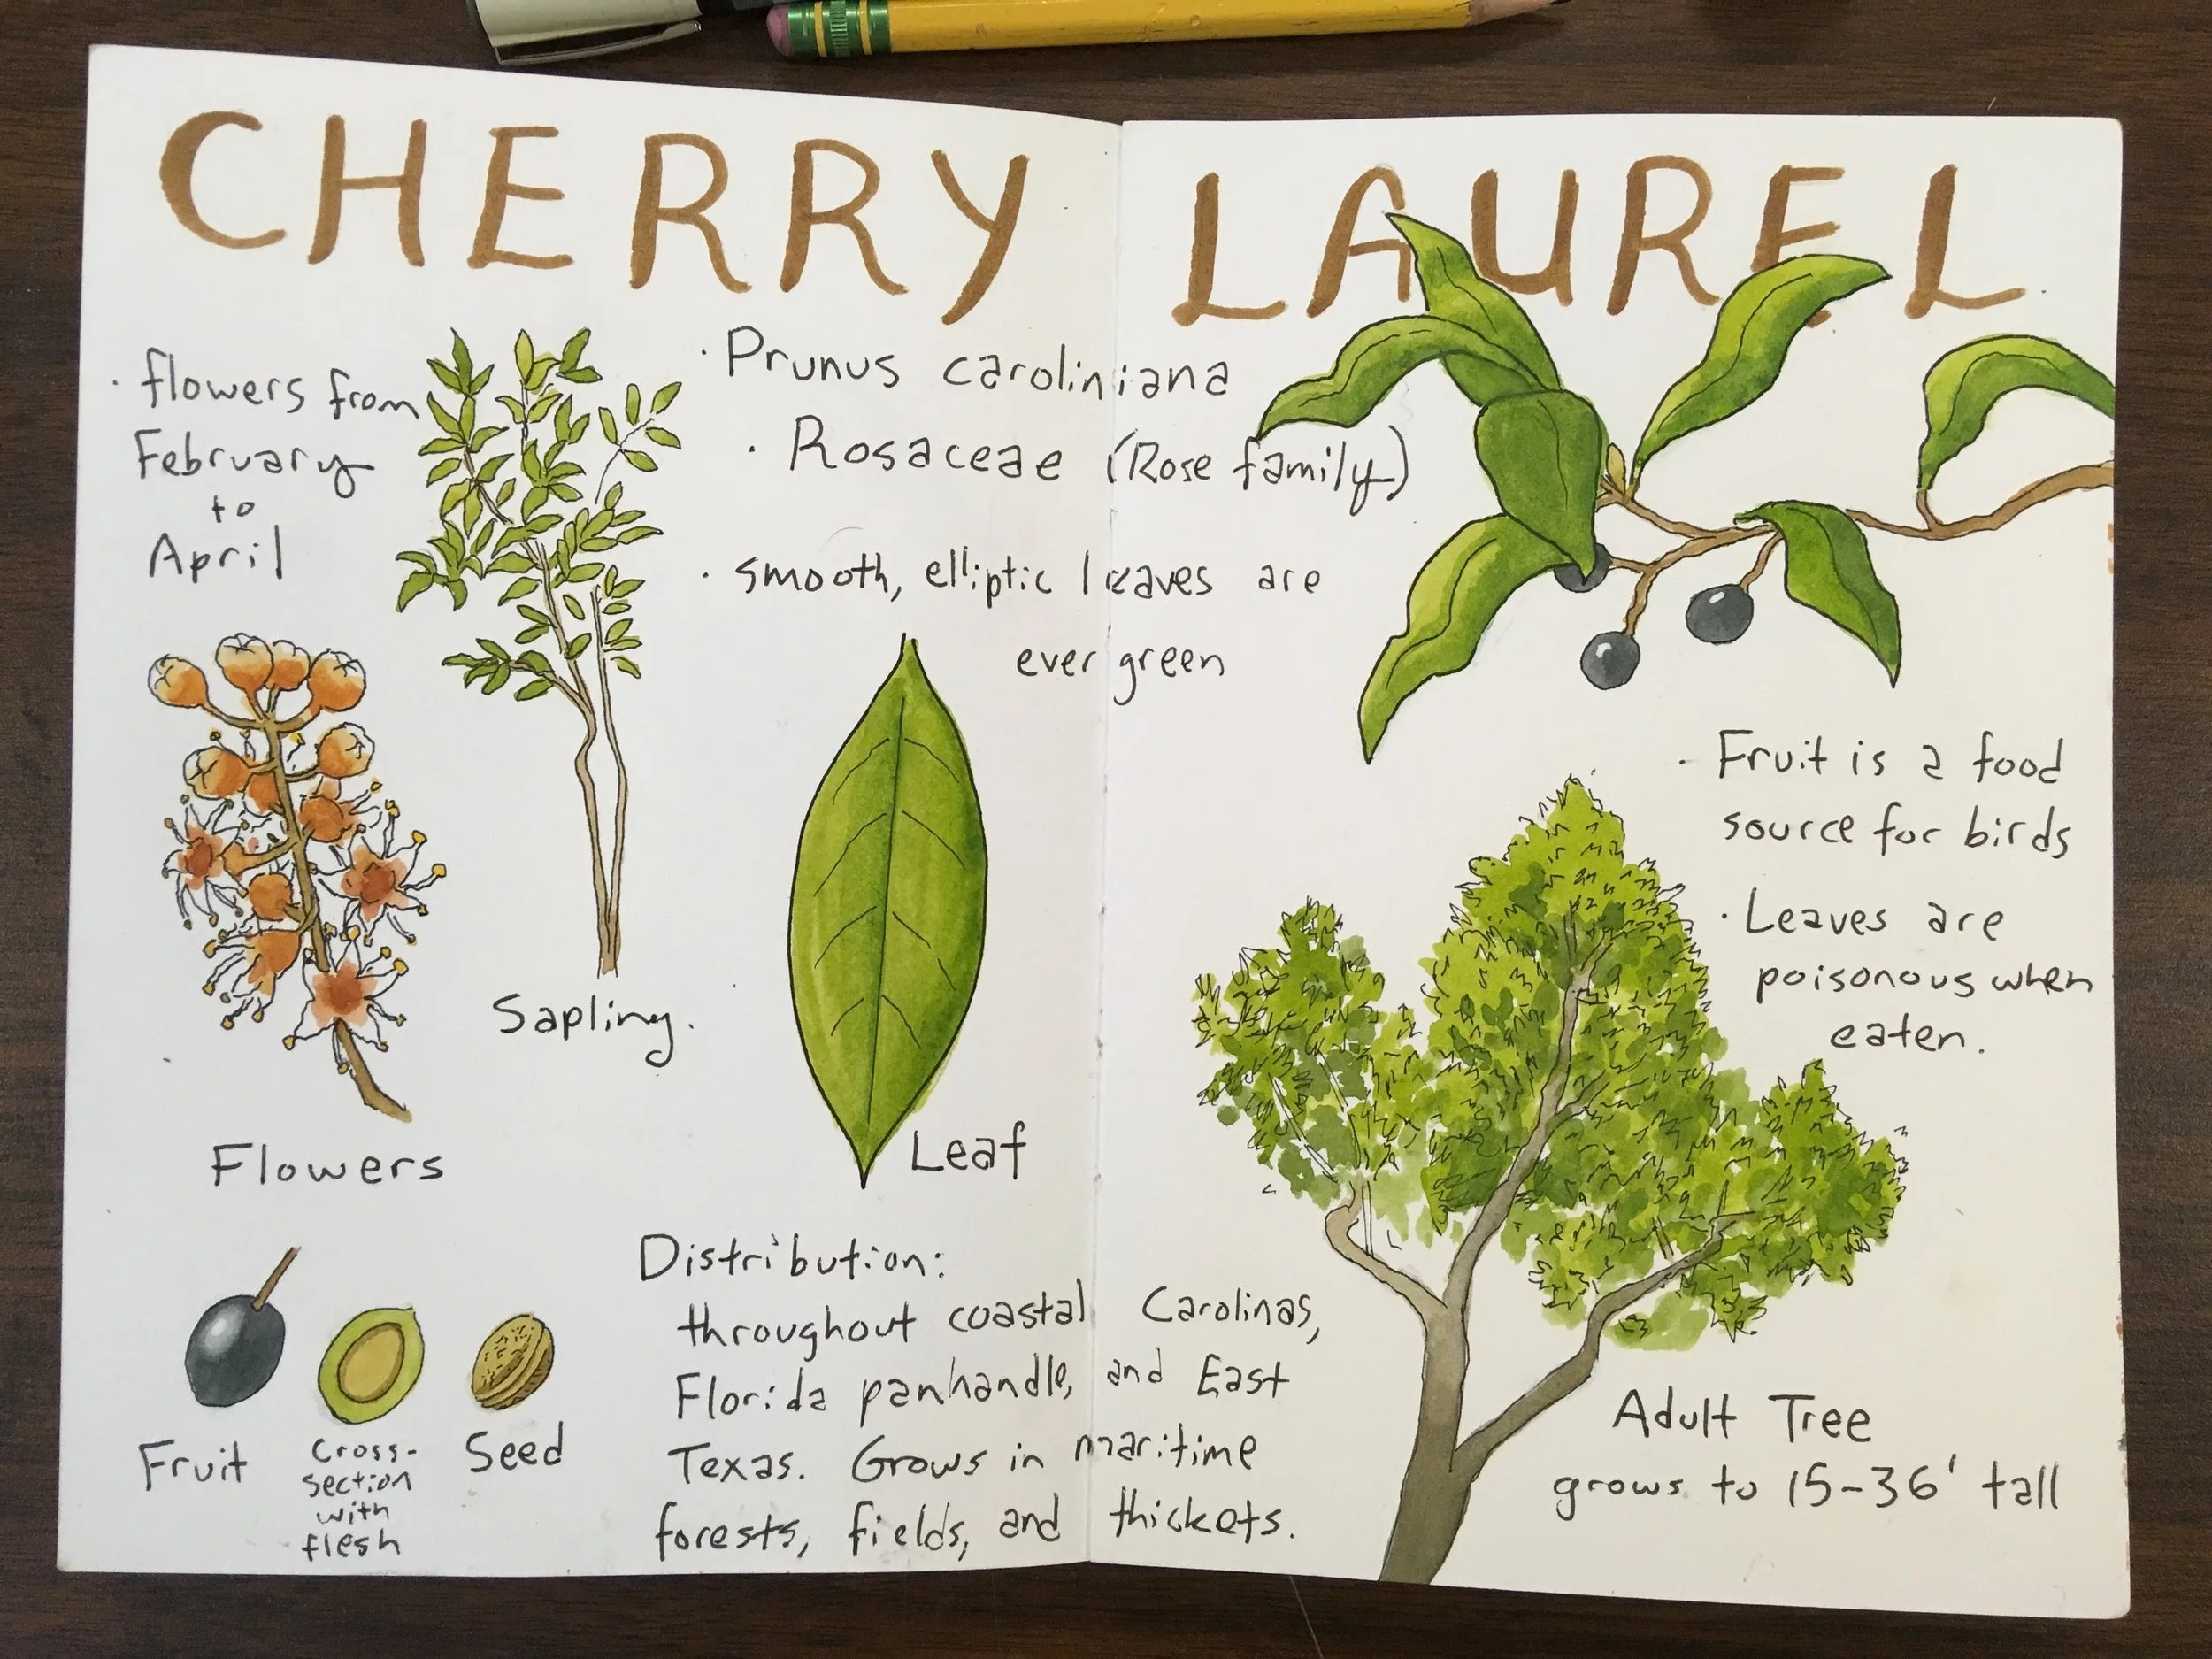 CHERRY LAUREL
· flowers from
February
to
April
· Prunus caroliniana
· Rosaceae (Rose family)
· smooth, elliptic leaves are
evergreen
Sapling.
Flowers
Leaf
Fruit
Cross-
section
with
flesh
Seed
Distribution:
throughout coastal Carolinas,
Florida panhandle, and East
Texas. Grows in maritime
forests, fields, and thickets.
· Fruit is a food
source for birds
· Leaves are
poisonous when
eaten.
Adult Tree
grows to 15-36' tall